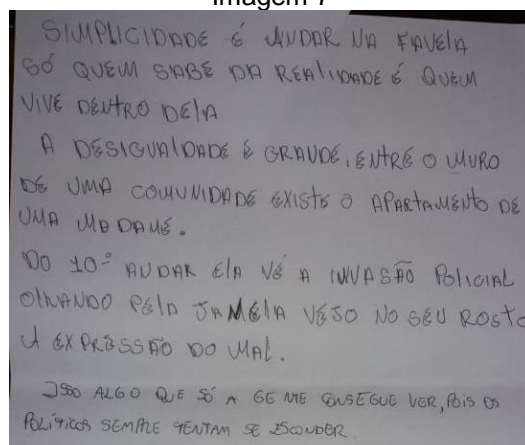 Imagem 7
SIMPLICIDADE É ANDAR NA FAVELA
SÓ QUEM SABE DA REALIDADE É QUEM
VIVE DENTRO DELA
A DESIGUALDADE É GRANDE, ENTRE O MURO
DE UMA COMUNIDADE EXISTE O APARTAMENTO DE
UMA MADAME.
DO 10º ANDAR ELA VÊ A INVASÃO POLICIAL
OLHANDO PELA JANELA VEJO NO SEU ROSTO
A EXPRESSÃO DO MAL.
ISSO ALGO QUE SÓ A GENTE CONSEGUE VER, POIS OS
POLÍTICOS SEMPRE TENTAM SE ESCONDER.